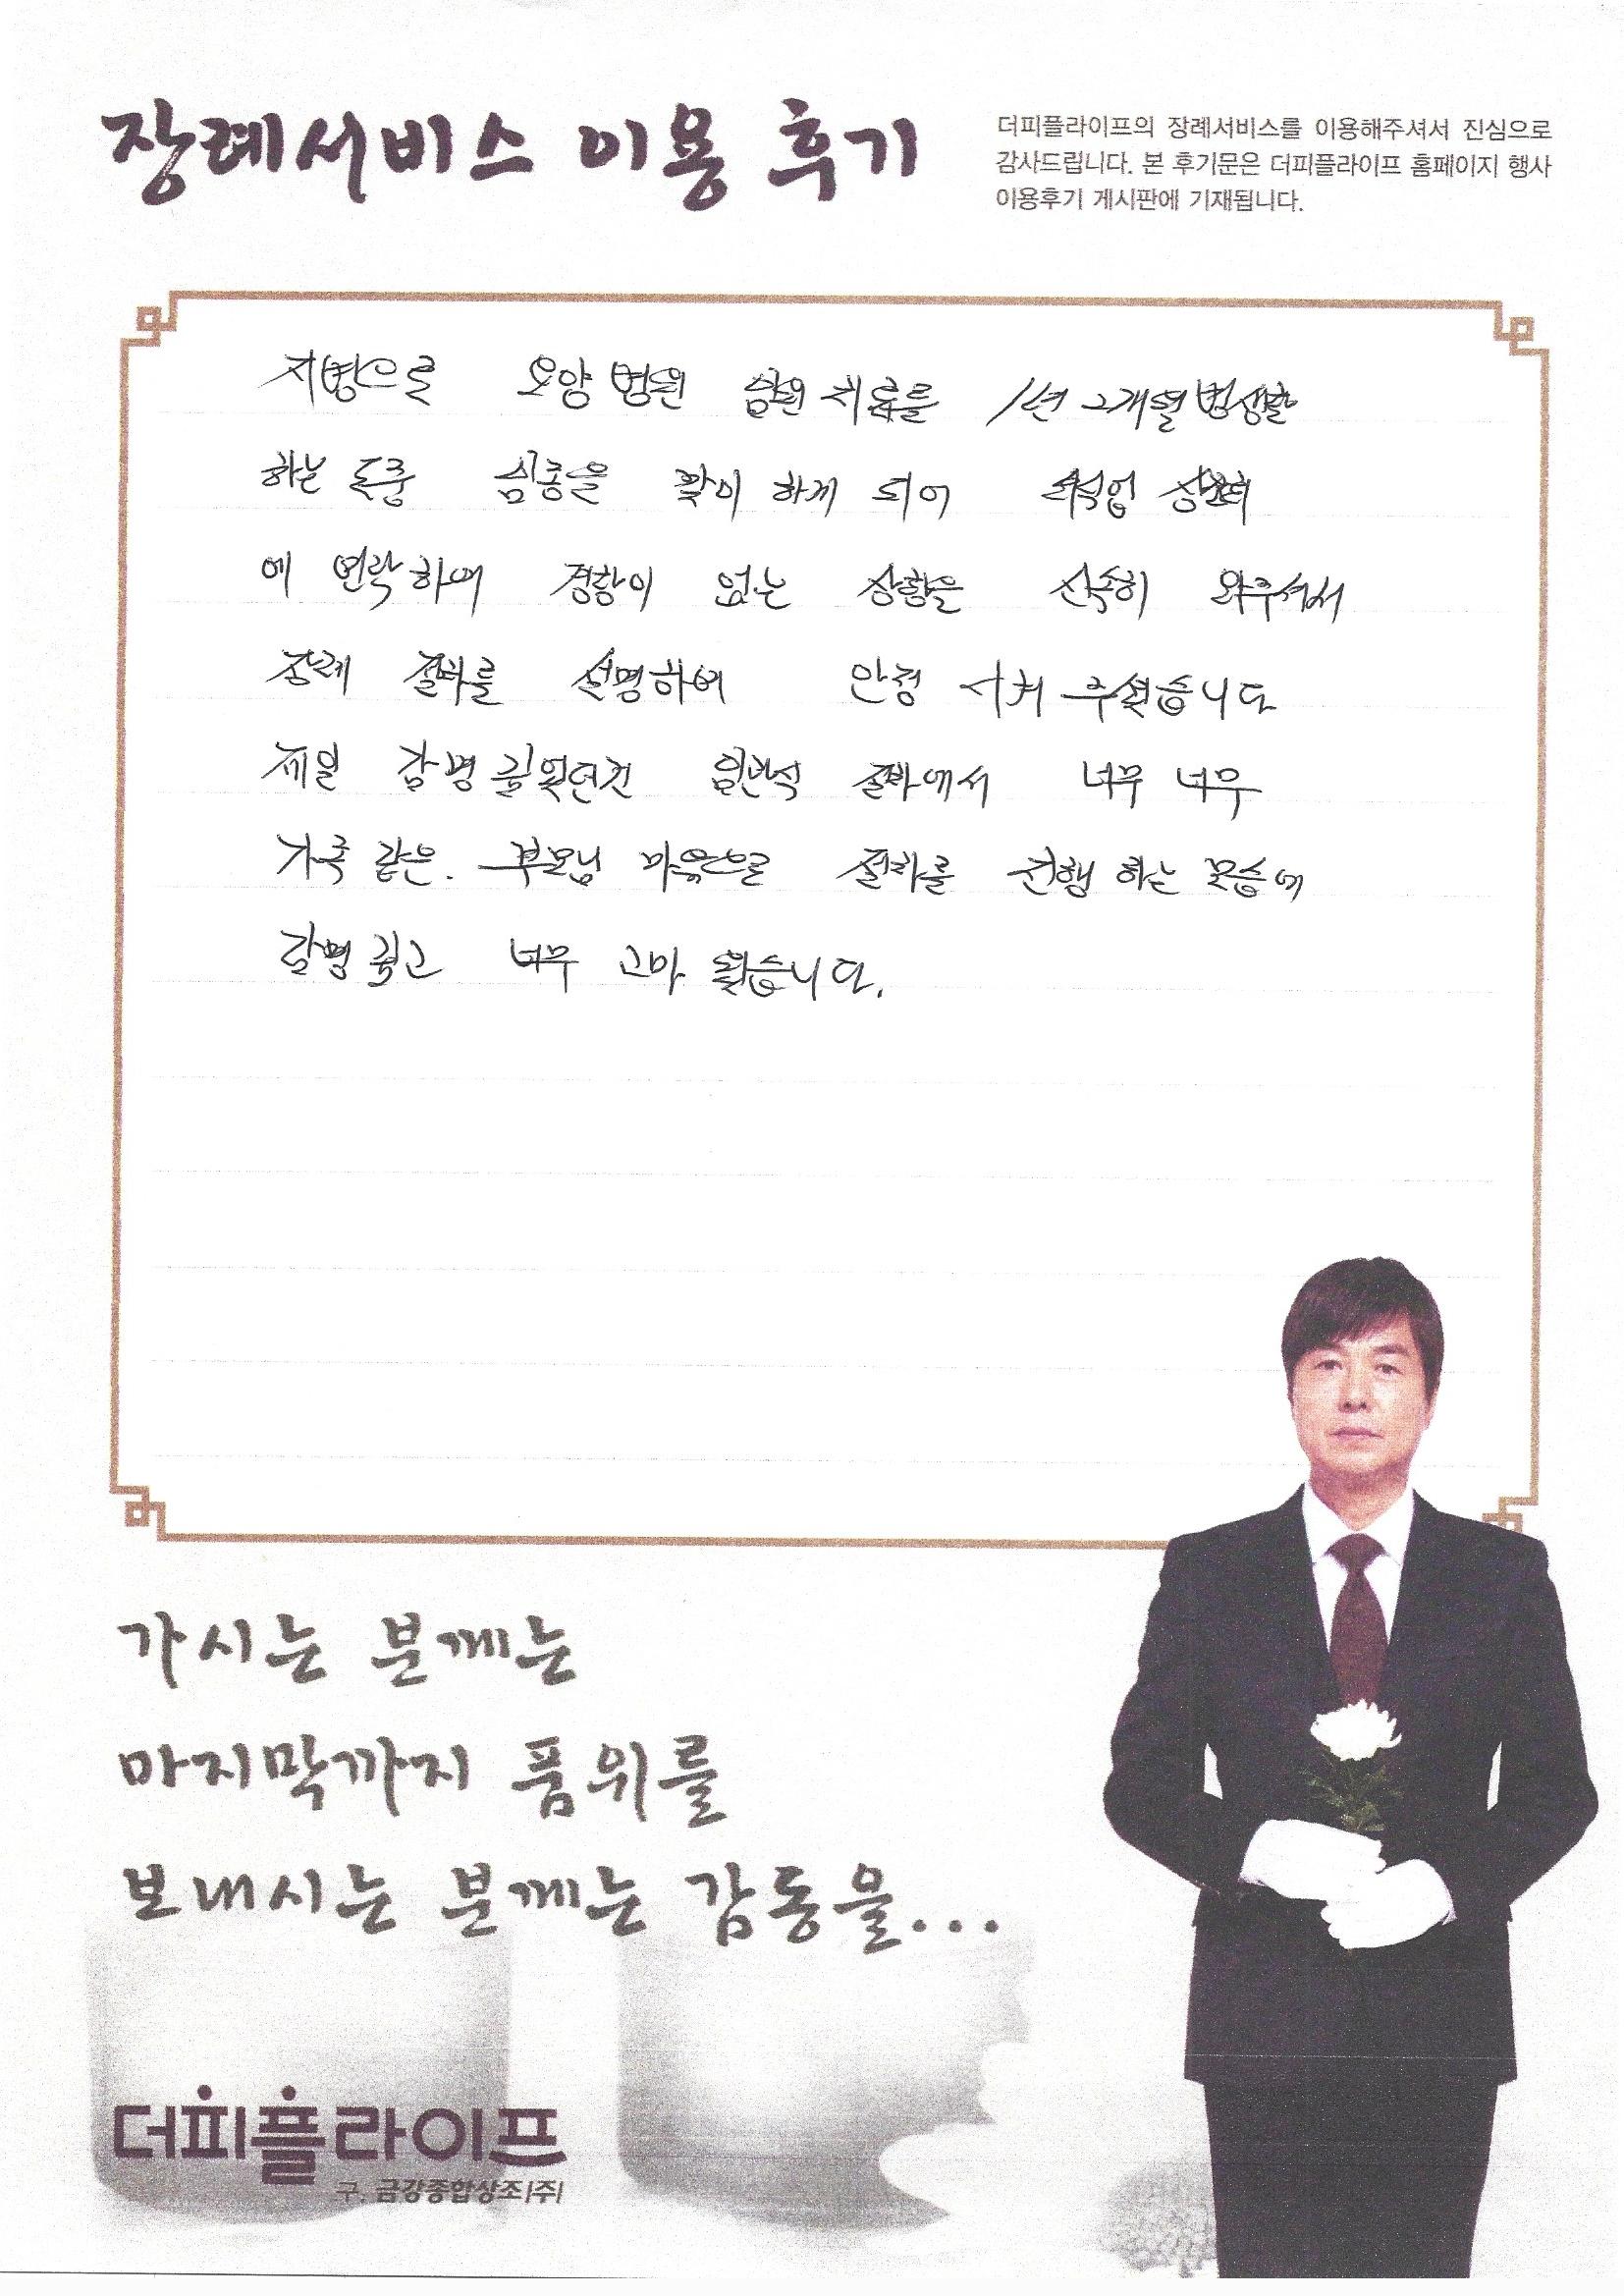 장례서비스 이용 후기
더피플라이프의 장례서비스를 이용해주셔서 진심으로
감사드립니다. 본 후기문은 더피플라이프 홈페이지 행사
이용후기 게시판에 기재됩니다.
지병으로 요양 병원 입원 치료를 1년 2개월 병생활
하는 도중 임종을 맞이 하게 되어
에 연락하여 경황이 없는 상황을 신속히 와주셔서
장례 절차를 설명하여 안정 시켜 주셨습니다
제일 감명 깊었던건 입관식 절차에서 너무 너무
가족 같은. 부모님 마음으로 절차를 진행 하는 모습에
감명 깊고 너무 고마 웠습니다.
가시는 분께는
마지막까지 품위를
보내시는 분께는 감동을...
더피플라이프
구. 금강종합상조(주)